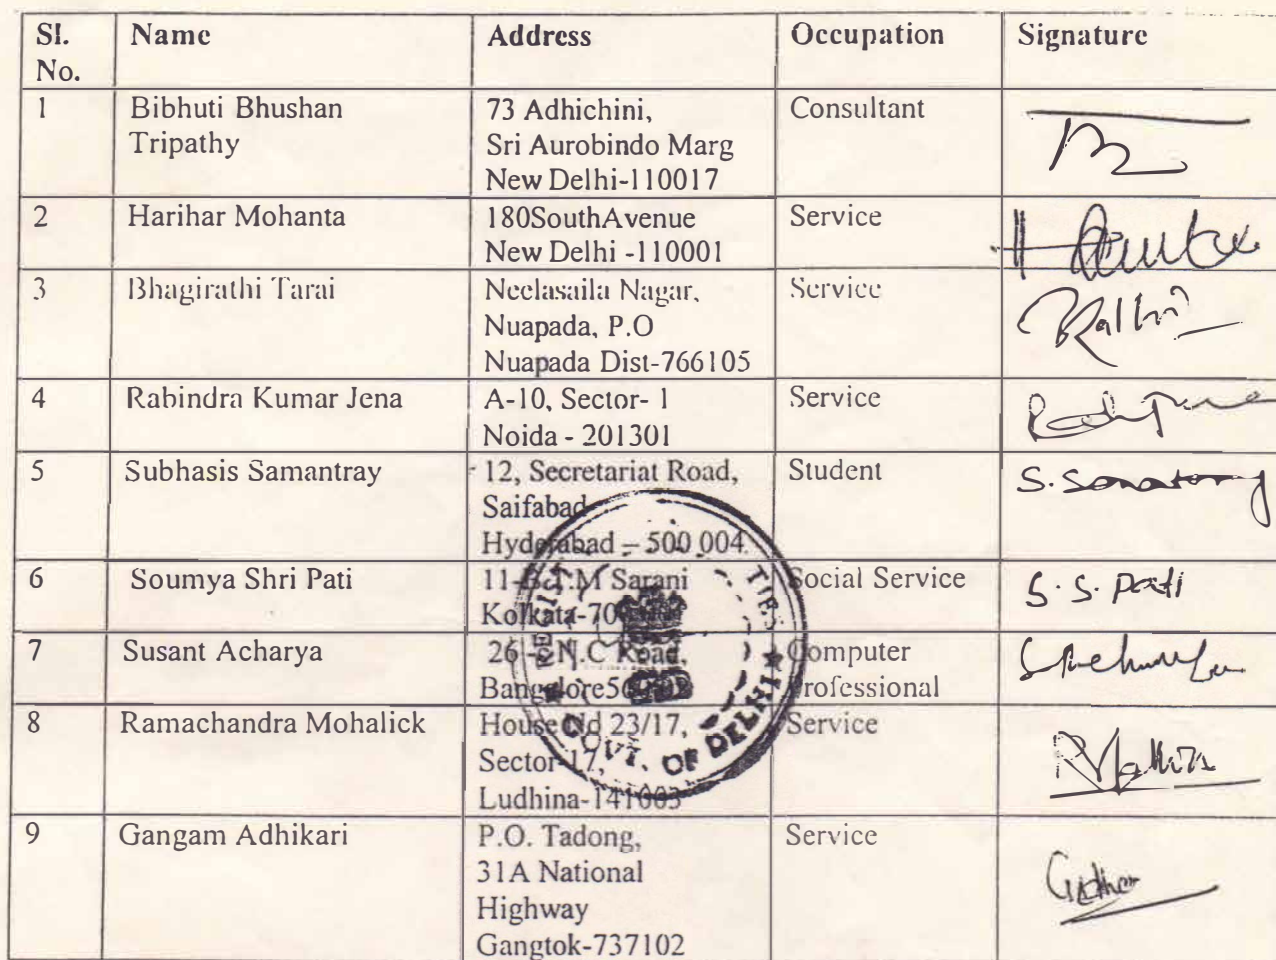 Sl. No. Name Address Occupation Signature
1 Bibhuti Bhushan Tripathy 73 Adhichini, Sri Aurobindo Marg New Delhi-110017 Consultant
2 Harihar Mohanta 180SouthAvenue New Delhi -110001 Service
3 Bhagirathi Tarai Neelasaila Nagar, Nuapada, P.O Nuapada Dist-766105 Service
4 Rabindra Kumar Jena A-10, Sector- 1 Noida - 201301 Service
5 Subhasis Samantray 12, Secretariat Road, Saifabad Hyderabad – 500 004 Student
6 Soumya Shri Pati Sarani Social Service S. S. Pati
7 Susant Acharya 26 N.C Road, Computer Professional
8 Ramachandra Mohalick House No 23/17, Sector-17, Ludhina-141003 Service
9 Gangam Adhikari P.O. Tadong, 31A National Highway Gangtok-737102 Service
GOVT. OF DELHI